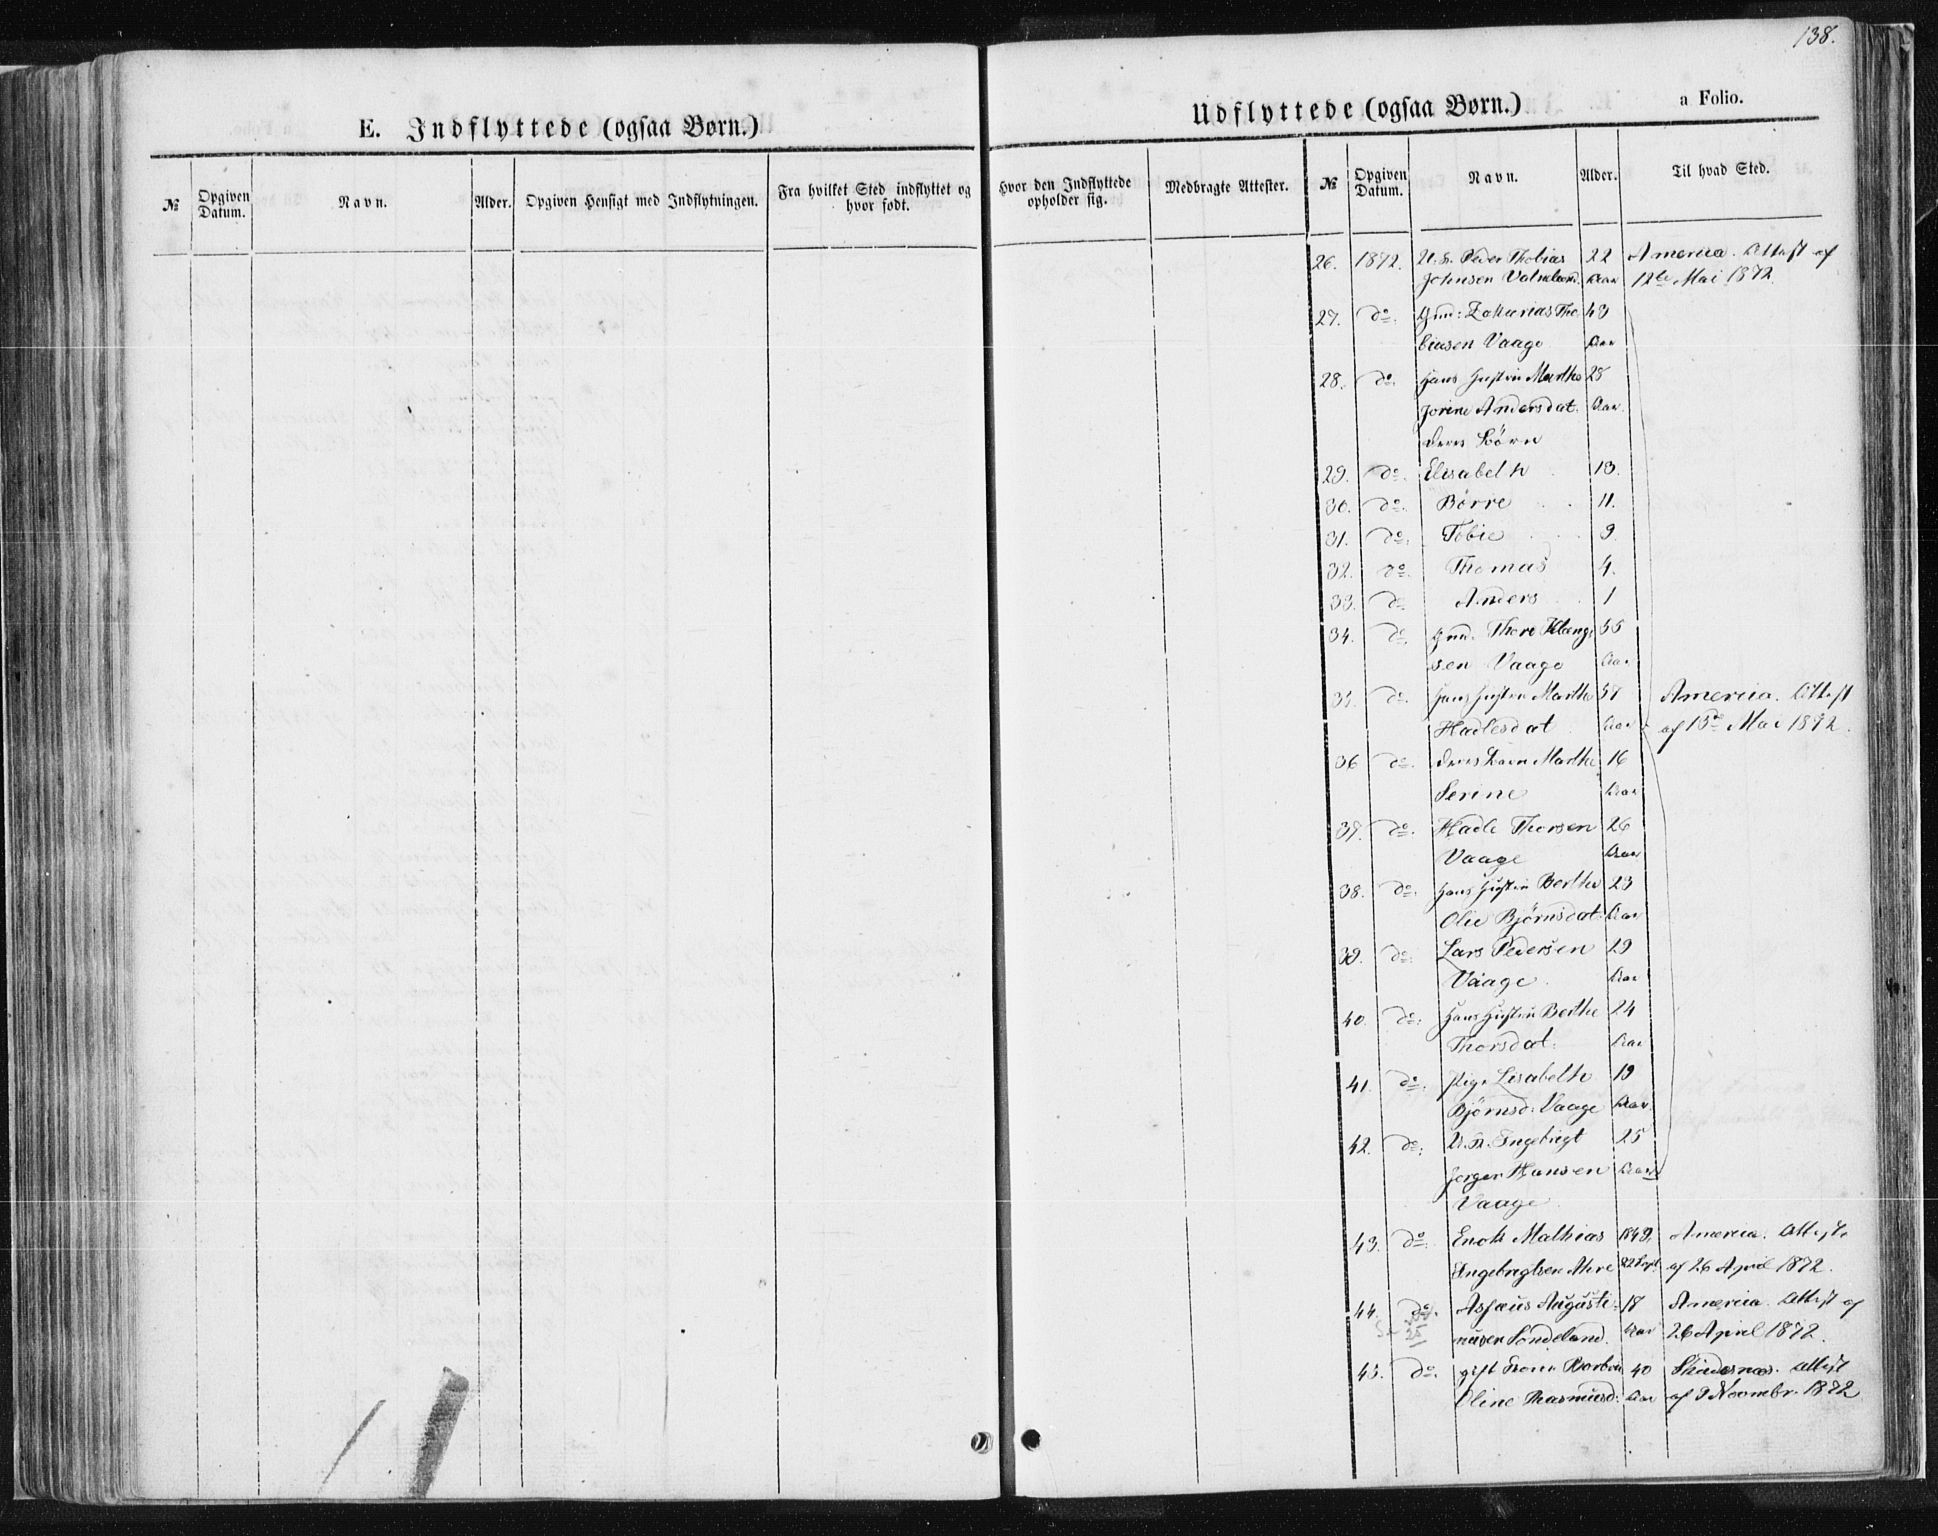 138.
E. Indflyttede (ogsaa Børn.)
Udflyttede (ogsaa Børn.) a Folio.
№ Opgiven Datum. Navn. Alder. Opgiven Hensigt med Indflytningen. Fra hvilket Sted indflyttet og hvor født. Hvor den Indflyttede opholder sig. Medbragte Attester. № Opgiven Datum. Navn. Alder. Til hvad Sted.
26. 1872. U. K. Peder Thobias 22 America. Attest af
Johnsen Valneland. Aar 12te Mai 1872.
27. do. Gmd: Zakarias Tho- 43
biasen Vaage Aar
28. do. Hans Hustru Marthe 28
Jorine Andersdat. Aar.
deres Börn
29. do. Elisabeth 13.
30. do. Börre 11.
31. do. Tobie 9
32. do. Thomas 4.
33. do Anders 1
34. do. Gmd. Thore Klæng- 55
sen Vaage Aar
35. do. Hans Hustru Marthe 57 America. Attest
Hadlesdat Aar af 15de Mai 1872.
36 do. deres Barn Marthe 16
Serine Aar
37. do. Hadle Thorsen 26
Vaage Aar
38. do. Hans Hustru Berthe 23
Olie Björnsdat. Aar
39. do. Lars Pedersen 29
Vaage. Aar
40. do: Hans Hustru Berthe 24
Thorsdat: Aar
41. do: Pige Lisabeth 19
Björnsd: Vaage Aar.
42. do; U. K. Engebrigt 25
Jorgen Hansen Aar
Vaage.
43. do: Enok Mathias 1849, America. Attest
Engebrigtsen 22 Sept. af 26 April 1872.
44. do. Asfæus Augusti- 18 America. Attest af
nusen Söndeland. Aar 26 April 1872.
45. do. gift Kone Barbra 40 Attest
Oline Rasmusd: Aar af 9 Novembr. 1872